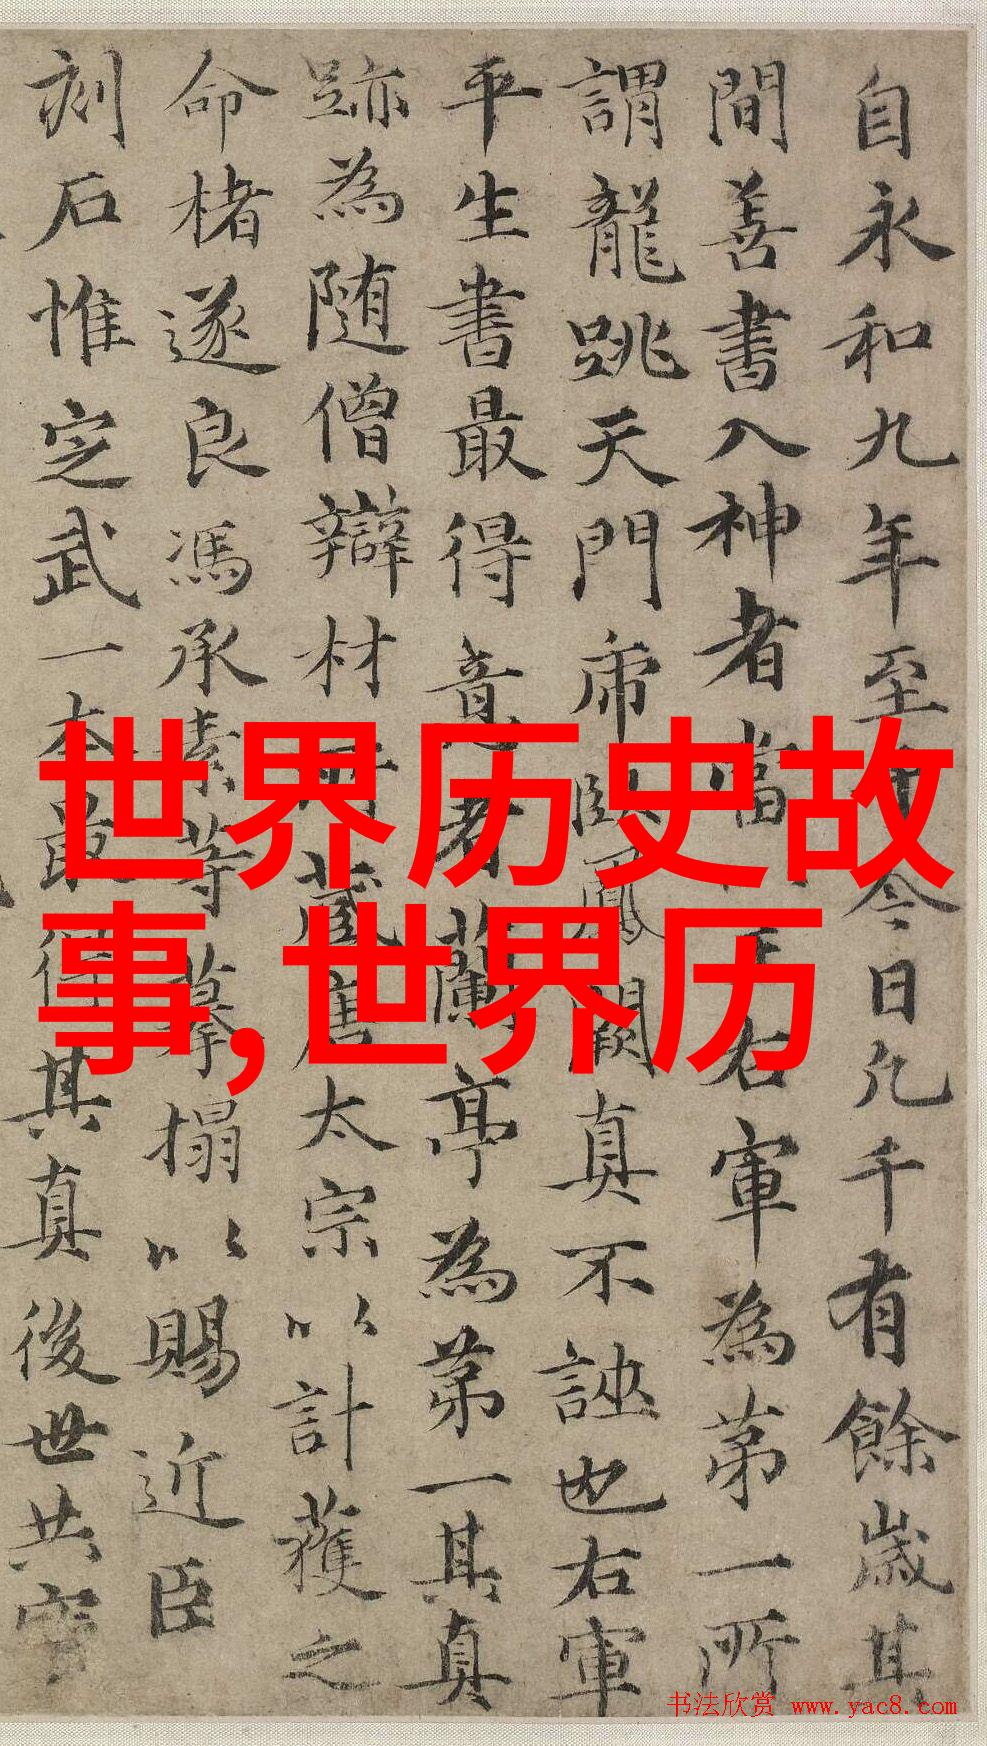 自永和九年至今日凡千有餘歲其
間善書入神者當王右軍為第一所
謂龍跳天門虎臥鳳闕真不誣也右軍
平生書最得意者蘭亭為第一其真
跡為随僧辯材所藏唐太宗以計獲之
命楮遂良馮承素等摹搨以賜近臣
刻石惟定武一本最得其真後世共寳
世界历史故
事,世界历
书法欣赏 www.yac8.com